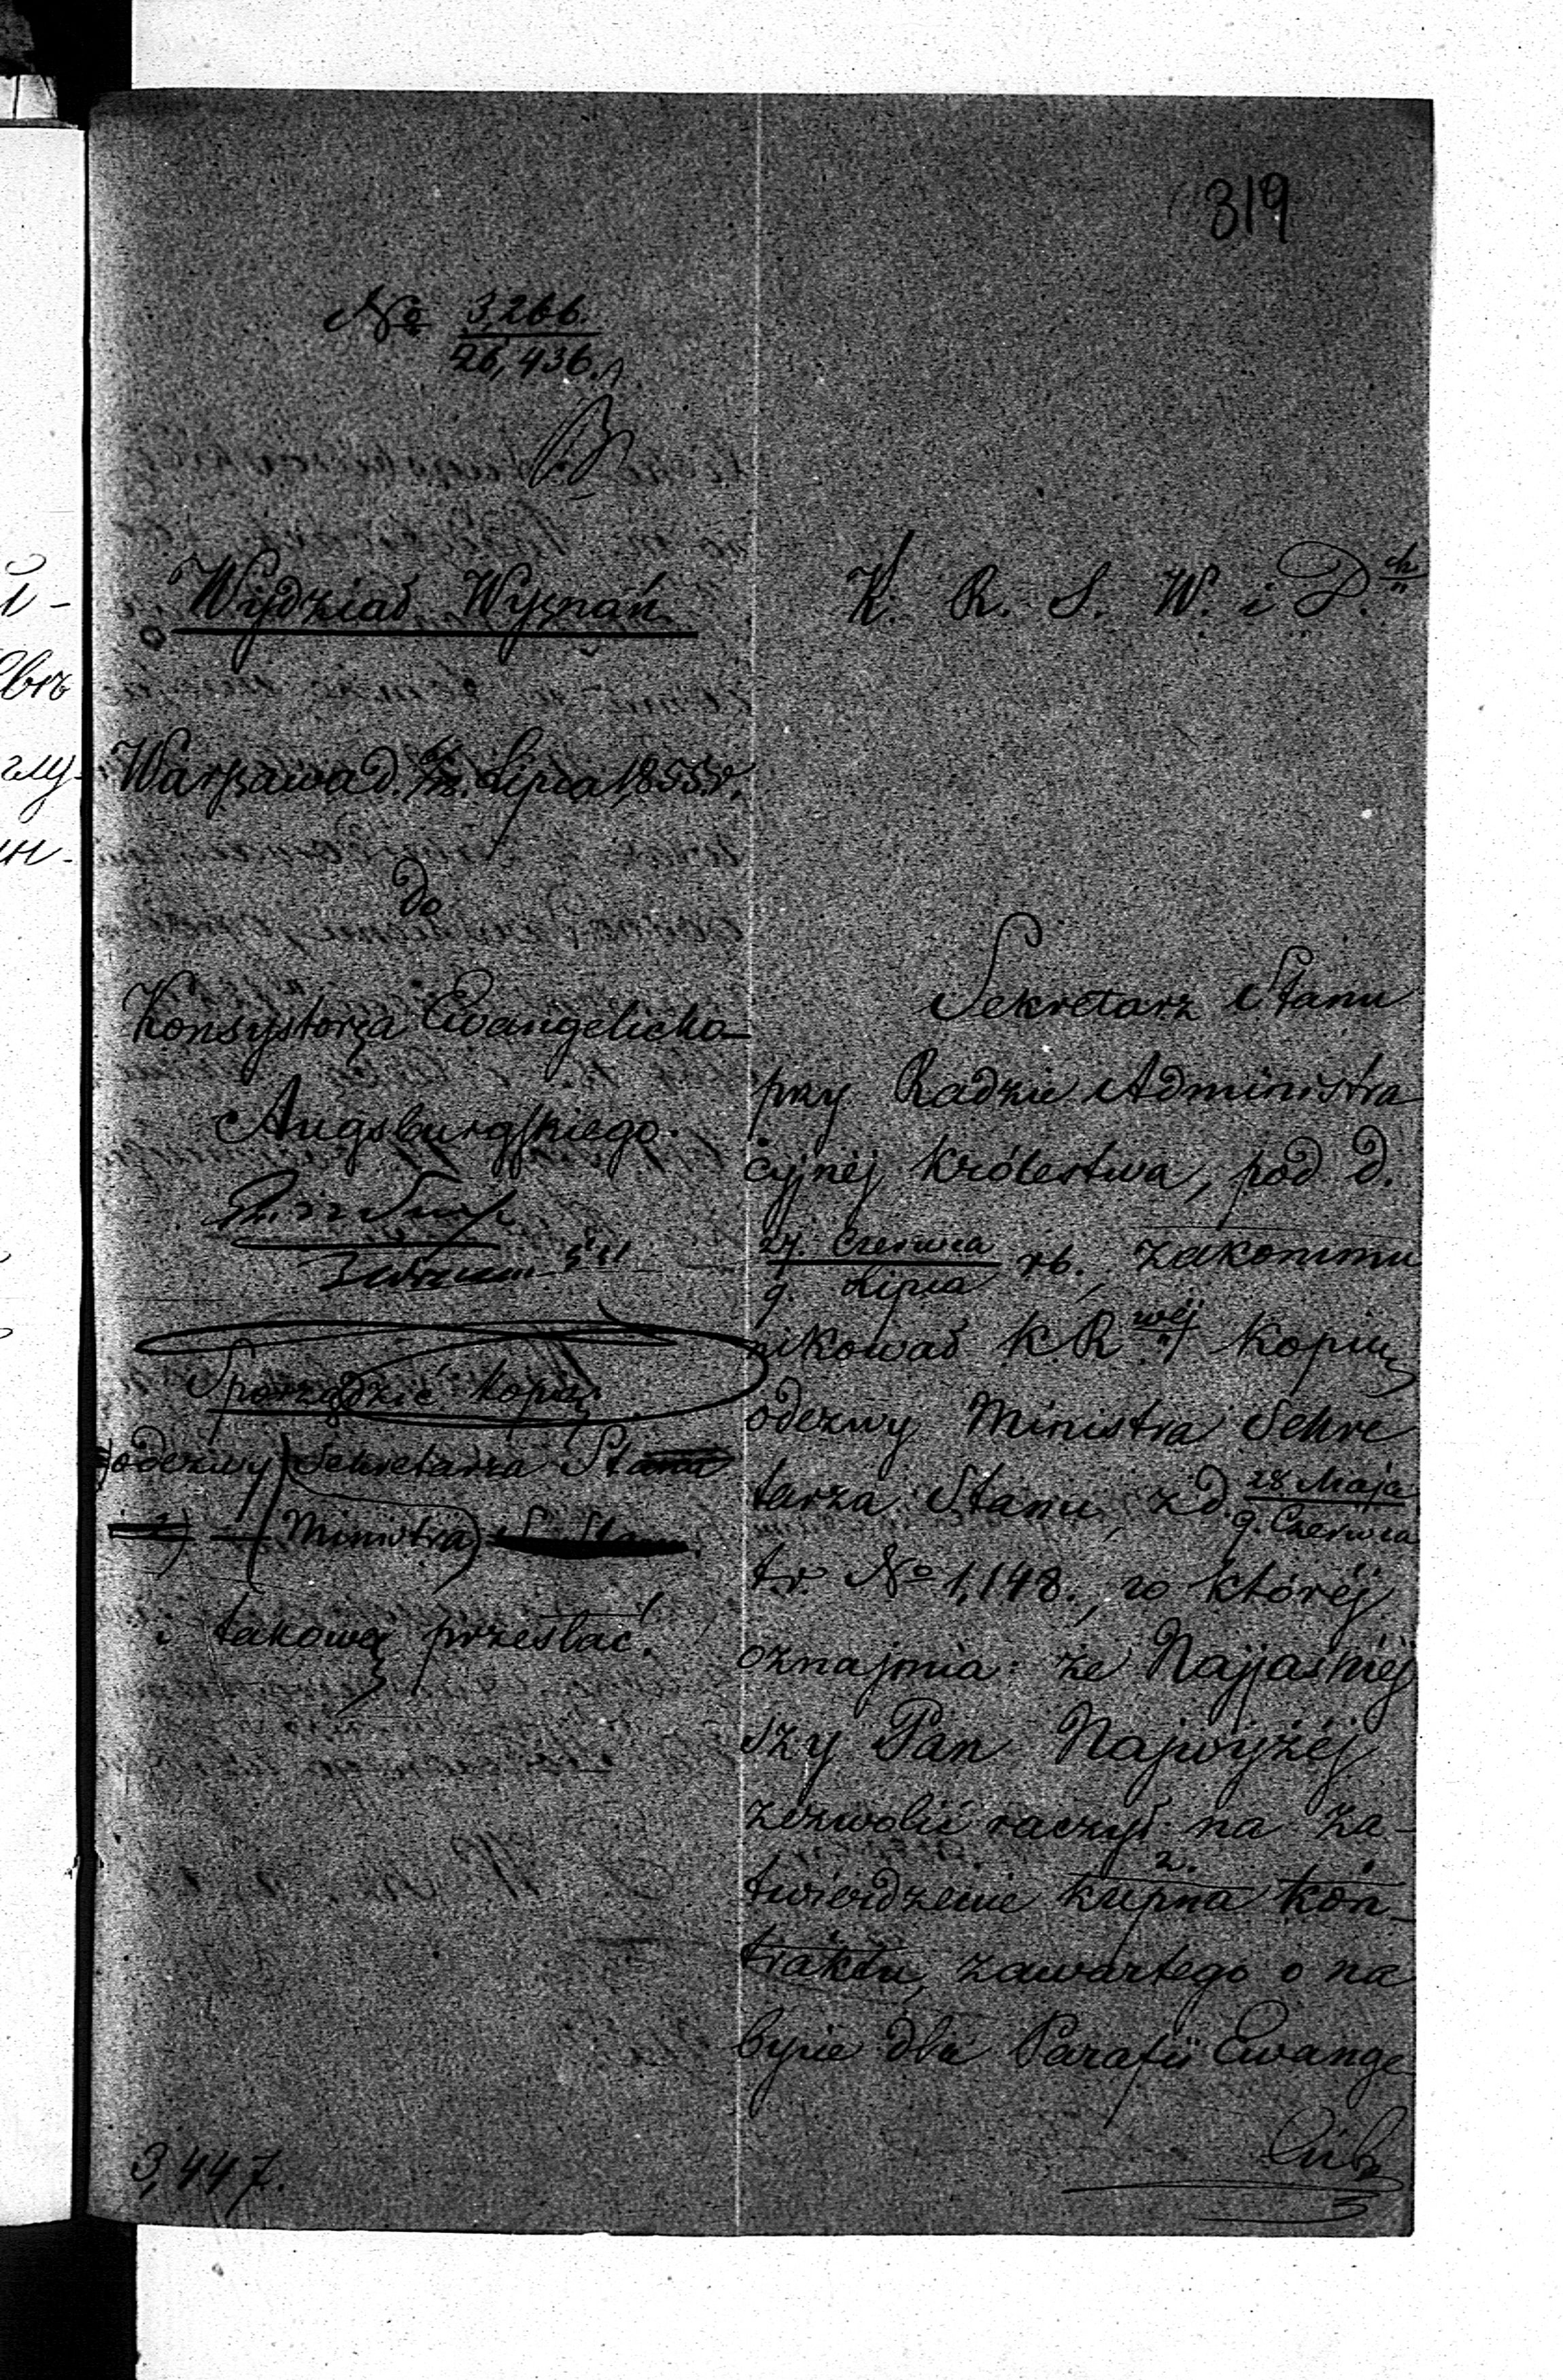 319
№ 3,266.
26,436.
Wydział Wyznań
Warszawa d. Lipca 1855 r.
do
Konsystorza Ewangelicko-
Augsburgskiego.
Sporządzić kopią
odezwy Sekretarza Stanu
Ministra
i takową przesłać.
3,447.
K. R. S. W. i D.ch
Sekretarz Stanu
przy Radzie Administra
cyjnéj Królestwa, pod d.
27. Czerwca
9. Lipca rb., zakommu
nikował K R wéj kopią
odezwy Ministra Sekre
tarza Stanu, z d. 28 Maja
9. Czerwca
tr. № 1,148., w któréj
oznajmia: że Najjaśniéj
szy Pan Najwyżéj
zezwolić raczył na za-
twierdzenie kupna kon-
traktu, zawartego o na
bycie dla Parafii Ewange